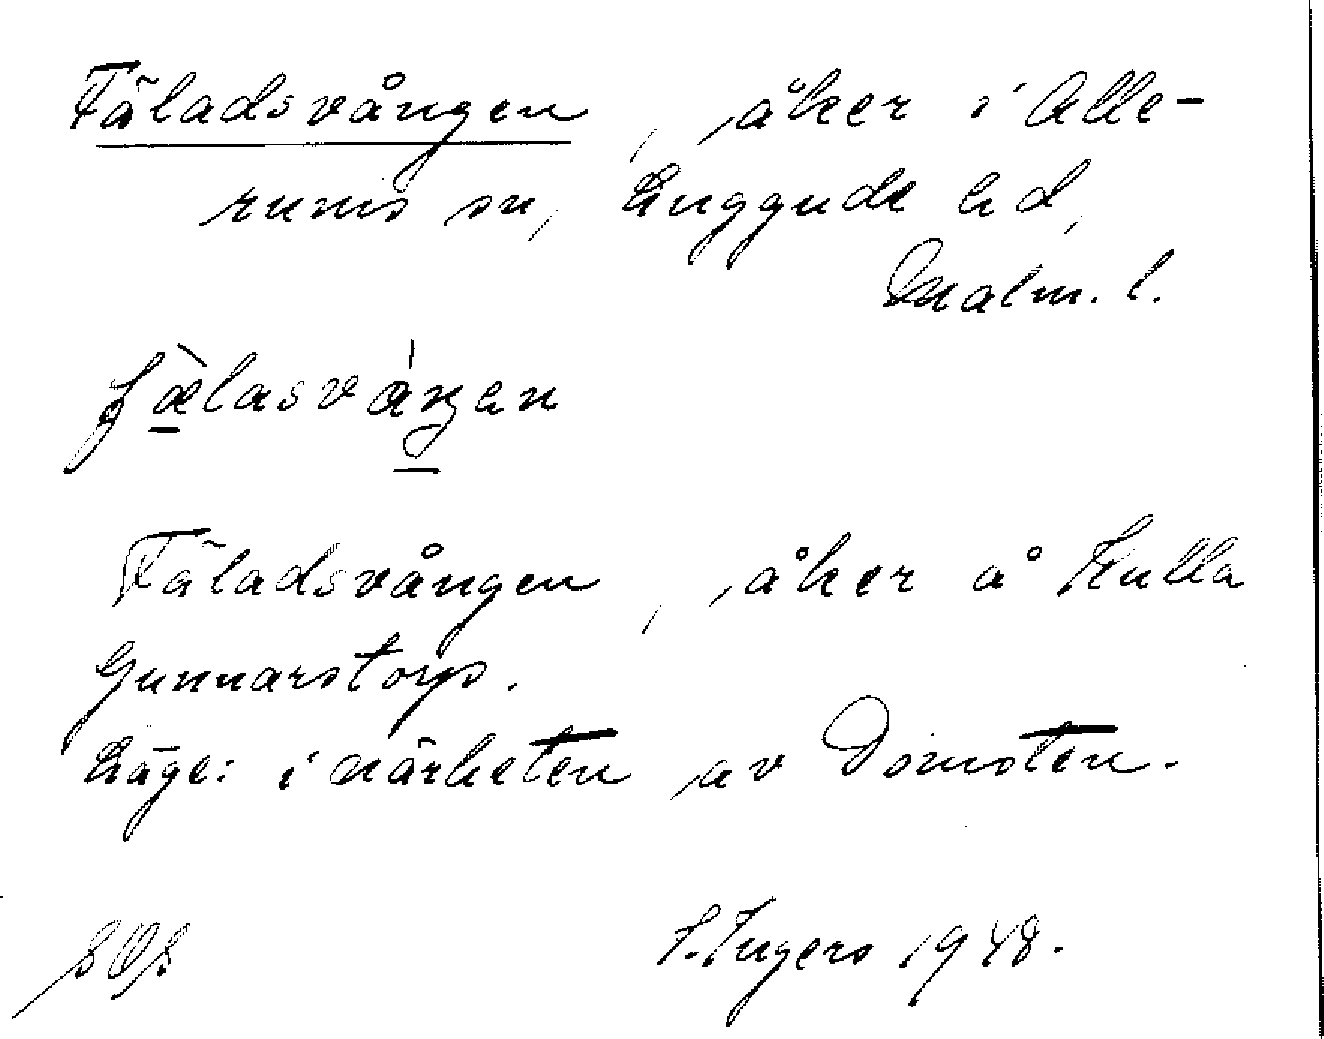 Fäladsvången, åker i Alle-
rums sn, Luggude hd,
Malm. l.
fæ̀lasvåŋen
Fäladsvången, åker å Kulla
Gunnarstorp.
Läge: i närheten av Domsten.
I. Ingers 1948.